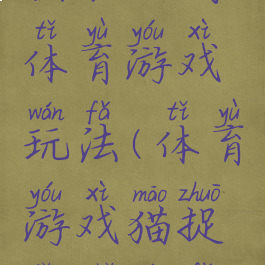 tǐ yù yóu xì
体育游戏
wán fǎ tǐ yù
玩法(体育
yóu xì māo zhuō
游戏猫捉